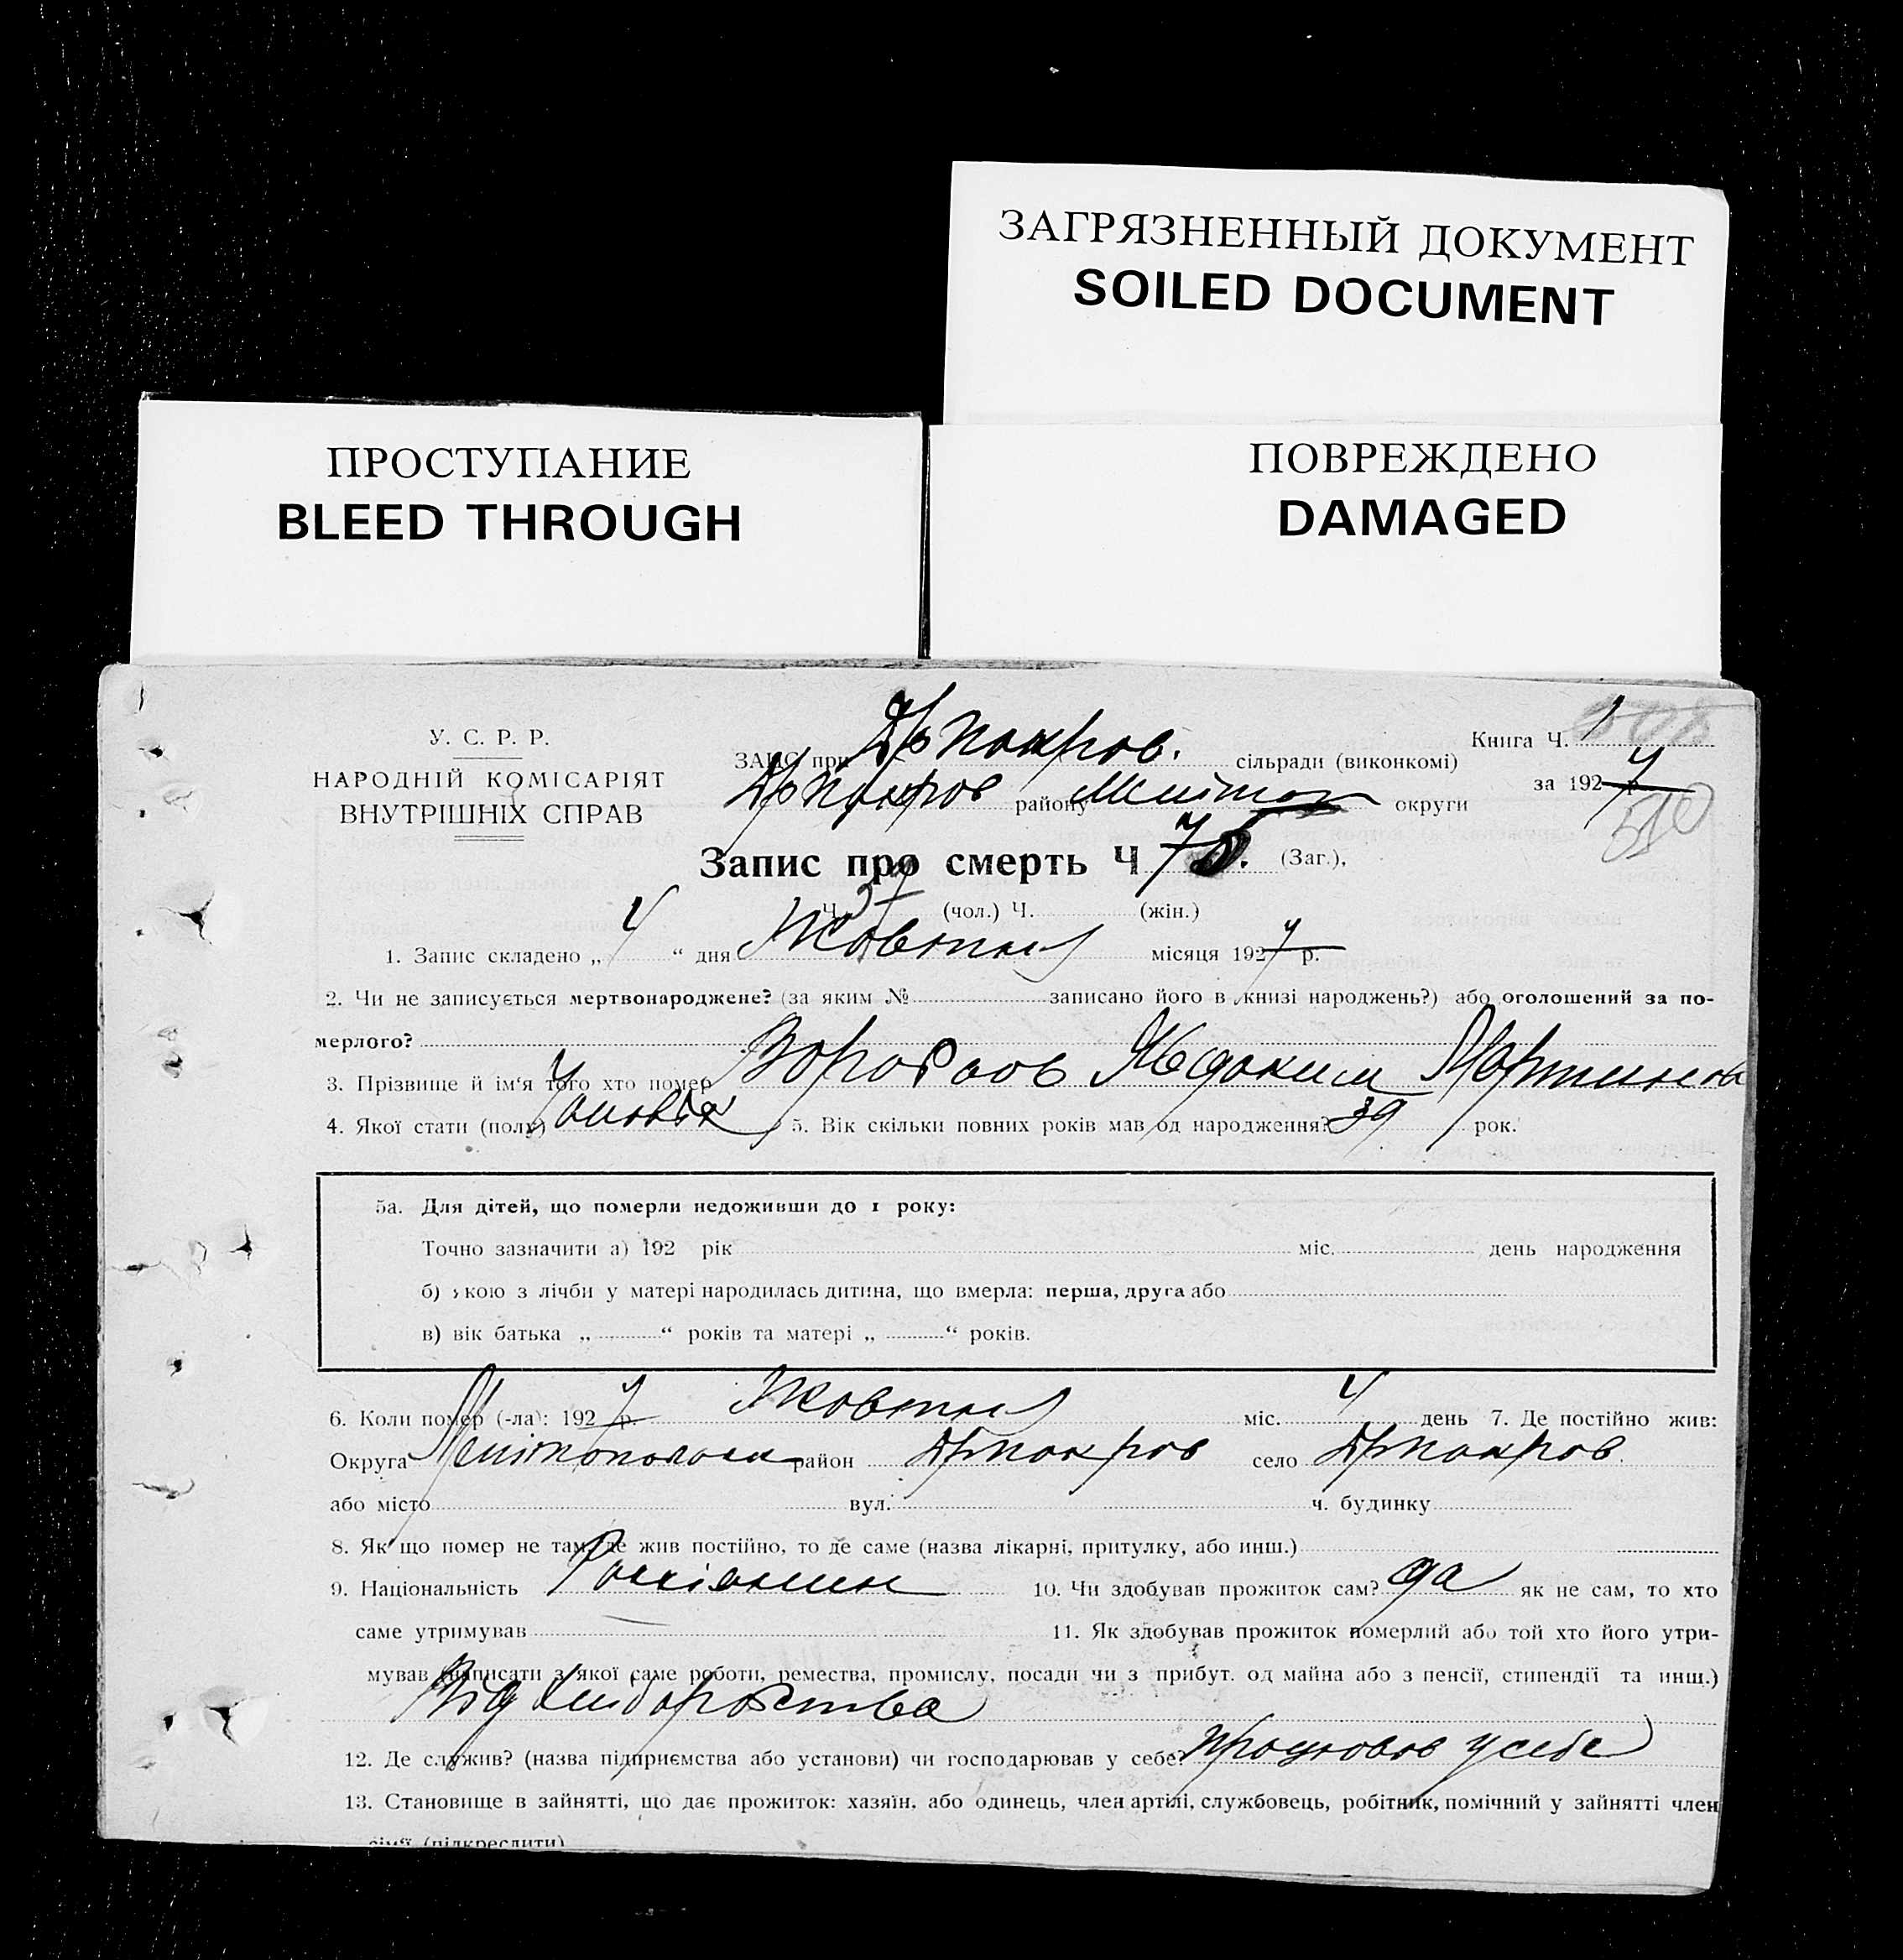 ЗАГРЯЗНЕННЫЙ ДОКУМЕНТ
SOILED DOCUMENT
ПРОСТУПАНИЕ
BLEED THROUGH
ПОВРЕЖДЕНО
DAMAGED
У. С. Р. Р.
НАРОДНІЙ КОМІСАРІЯТ
ВНУТРІШНІХ СПРАВ
ЗАПС при Др Покров. сільради (виконкомі)
Др Покров району округи
Книга Ч. 1
за 1927 р.
510
Запис про смерть Ч 78. (Заг.),
Ч. 37 (чол.) Ч. (жін.)
1. Запис складено „ 4 “ дня Жовтня місяця 1927 р.
2. Чи не записується мертвонароджене? (за яким № записано його в книзі народжень?) або оголошений за по-
мерлого?
3. Прізвище й ім'я того хто помер Мартинов
4. Якої стати (полу) Чоловік 5. Вік скільки повних років мав од народження? 39 рок.
5а. Для дітей, що померли недоживши до 1 року:
Точно зазначити а) 192 рік міс. день народження
б) якою з лічби у матері народилась дитина, що вмерла: перша, друга або
в) вік батька „ “ років та матері „ “ років.
6. Коли помер (-ла): 1927 р. Жовтня міс. 4 день 7. Де постійно жив:
Округа район Др Покров село Др Покров.
або місто вул. ч. будинку
8. Як що помер не там, де жив постійно, то де саме (назва лікарні, притулку, або инш.)
9. Національність 10. Чи здобував прожиток сам? да як не сам, то хто
саме утримував 11. Як здобував прожиток померлий або той хто його утри-
мував (написати з якої саме роботи, ремества, промислу, посади чи з прибут. од майна або з пенсії, стипендії та инш.)
Від хліборобства
12. Де служив? (назва підприємства або установи) чи господарював у себе? працював у себе
13. Становище в зайнятті, що дає прожиток: хазяїн, або одинець, член артілі, службовець, робітник, помічний у зайнятті член
сім'ї (підкреслити)